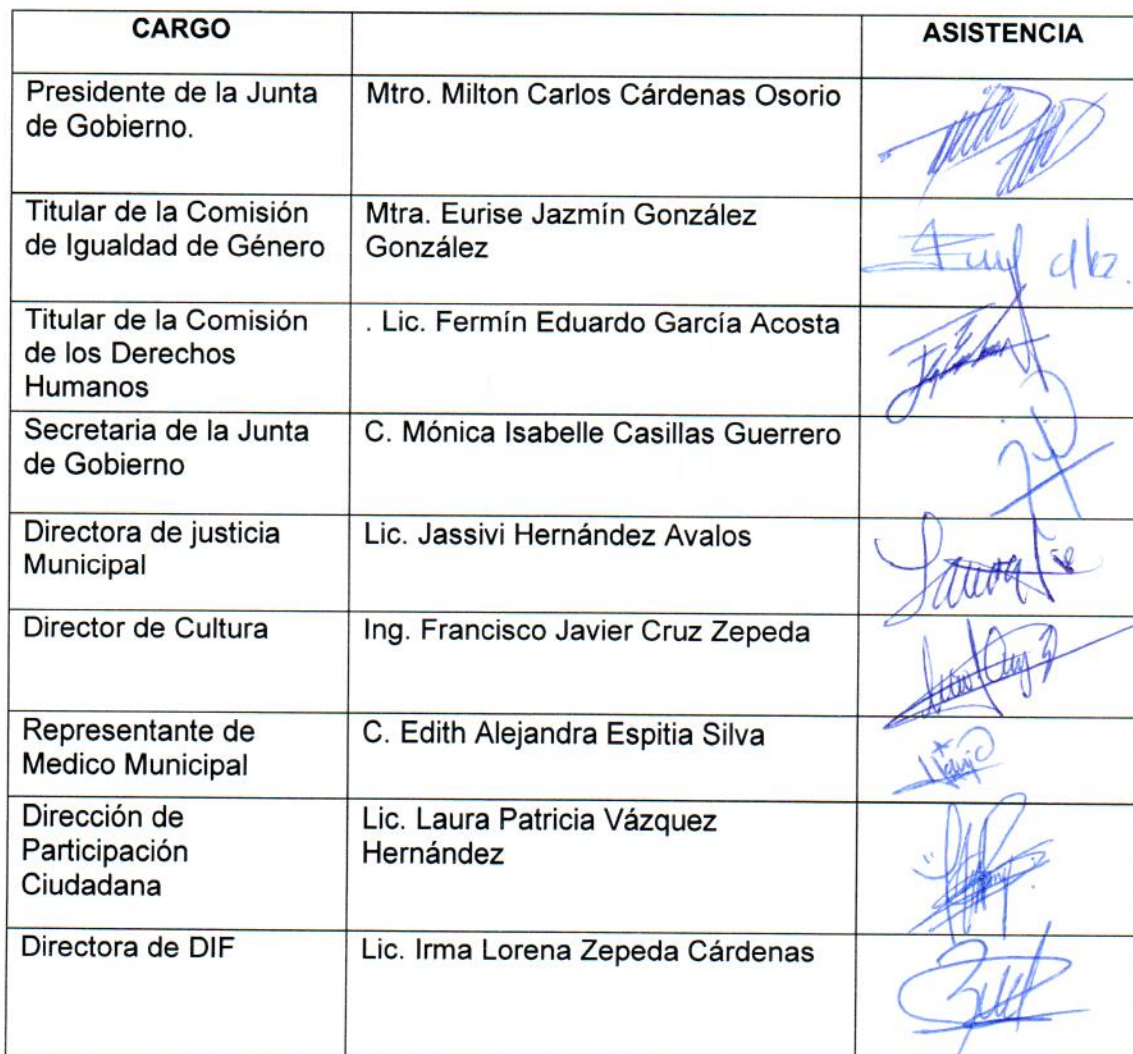 CARGO
ASISTENCIA
Presidente de la Junta
de Gobierno.
Mtro. Milton Carlos Cárdenas Osorio
Titular de la Comisión
de Igualdad de Género
Mtra. Eurise Jazmín González
González
Titular de la Comisión
de los Derechos
Humanos
. Lic. Fermín Eduardo García Acosta
Secretaria de la Junta
de Gobierno
C. Mónica Isabelle Casillas Guerrero
Directora de justicia
Municipal
Lic. Jassivi Hernández Avalos
Director de Cultura
Ing. Francisco Javier Cruz Zepeda
Representante de
Medico Municipal
C. Edith Alejandra Espitia Silva
Dirección de
Participación
Ciudadana
Lic. Laura Patricia Vázquez
Hernández
Directora de DIF
Lic. Irma Lorena Zepeda Cárdenas